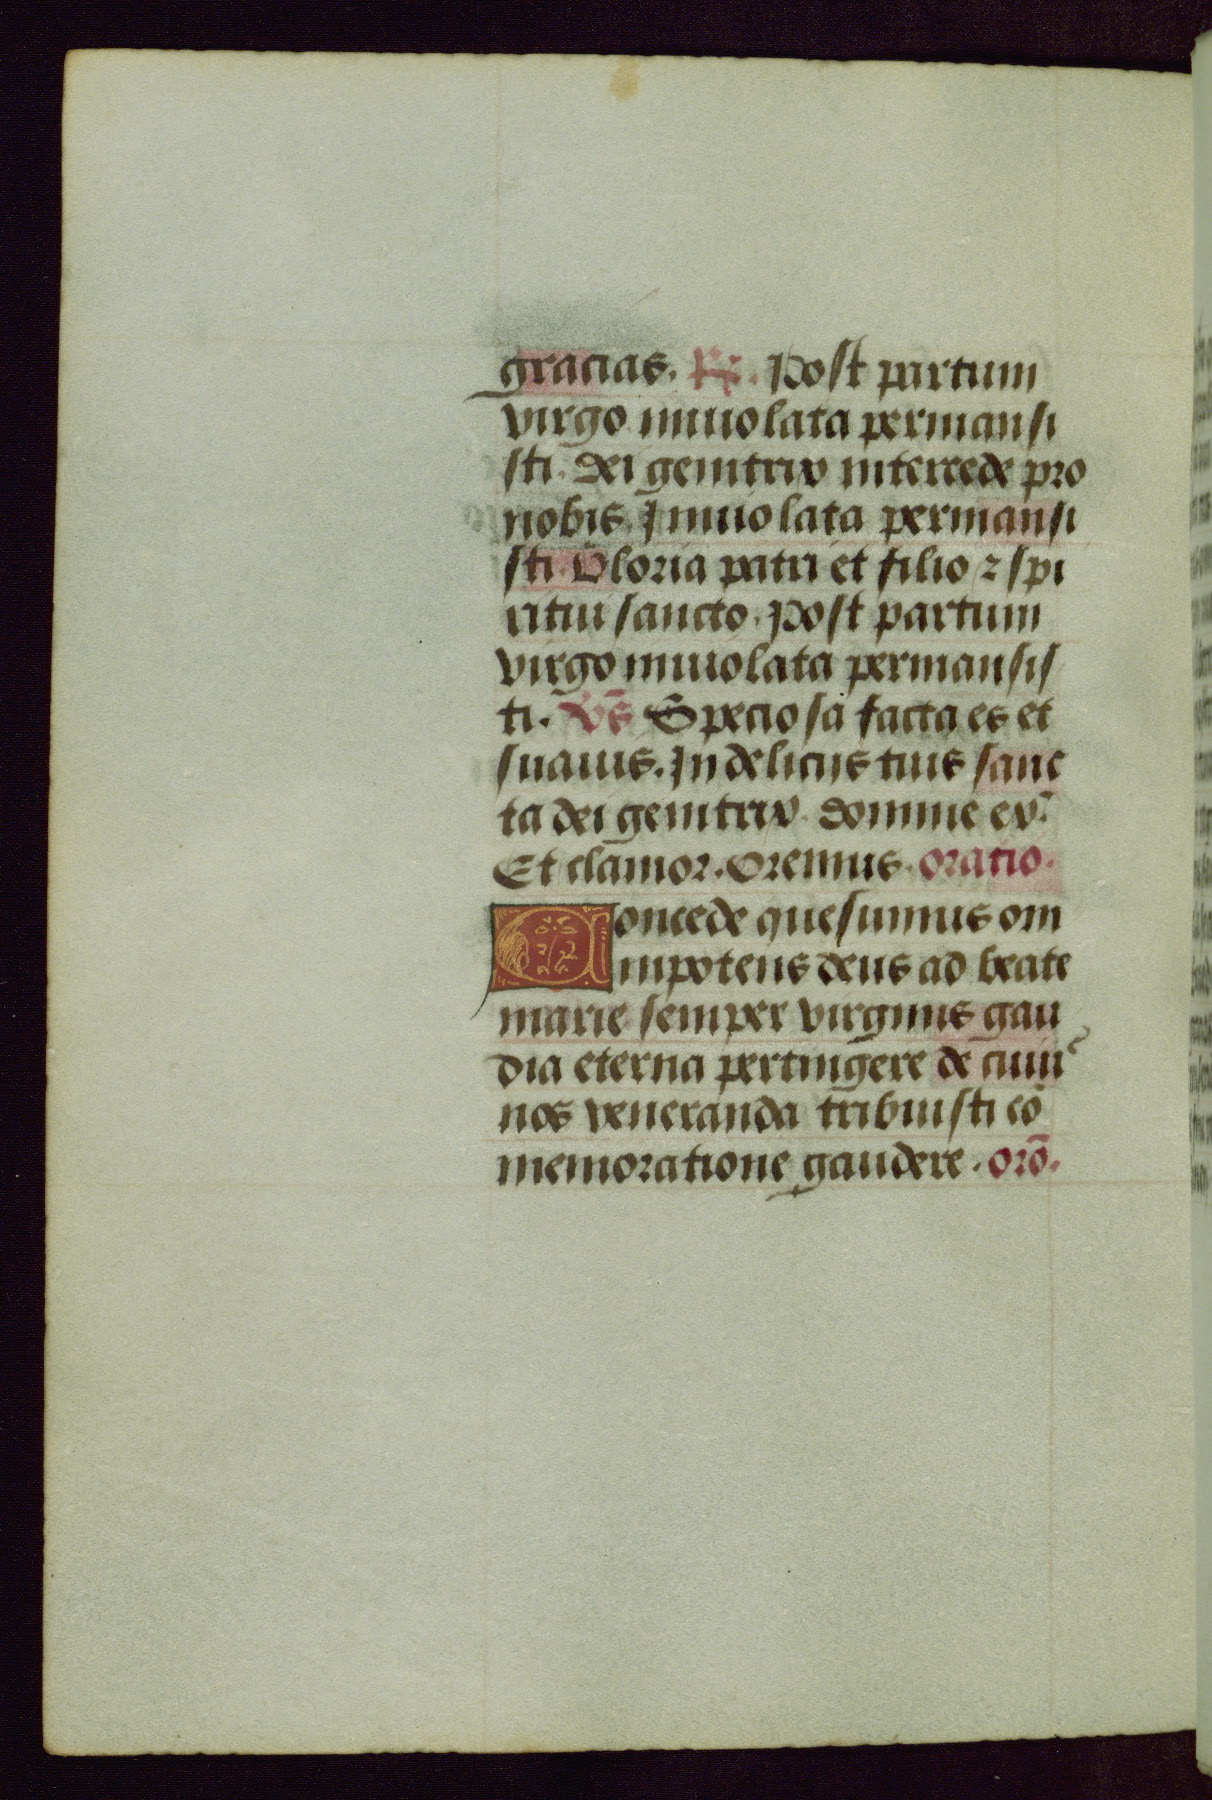 gracias. R̃. Post partum
virgo inuiolata permansi
sti. dei genitrix intercede pro
nobis. Inuiolata permansi
sti. Gloria patri et filio ⁊ spi
ritui sancto. Post partum
virgo inuiolata permansis
ti. Vs̄ Speciosa facta es et
suauis. In deliciis tuis sanc
ta dei genitrix. domine ex.
Et clamor. Oremus. oratio.
Concede quesumus om
nipotens deus ad beate
marie semper virginis gau
dia eterna pertingere de cuiuˢ
nos veneranda tribuisti cō
memoratione gaudere. orō.